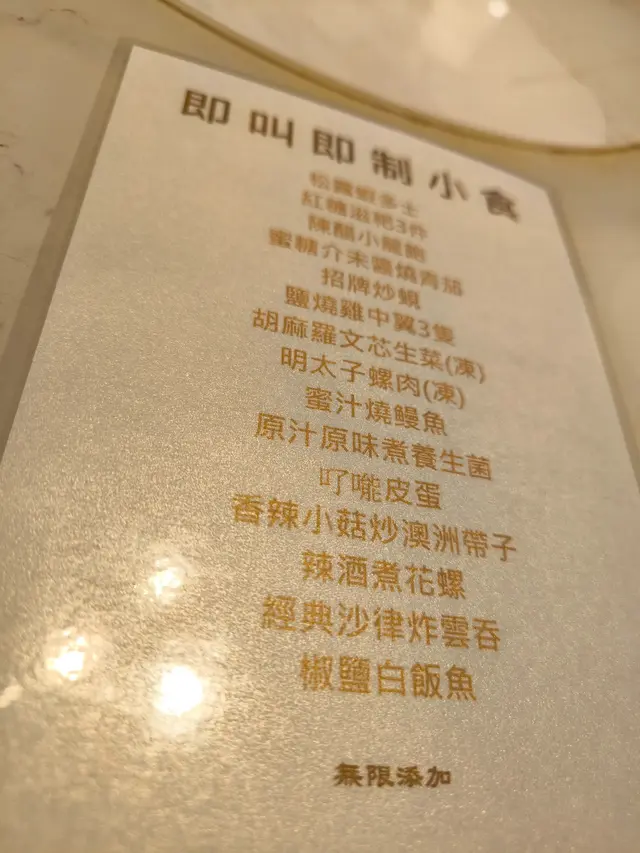 即叫即制小食
松露蝦多士
紅糖滋粑3件
陳醋小龍鮑
蜜糖介末醬燒青茄
招牌炒蜆
鹽燒雞中翼3隻
胡麻羅文芯生菜(凍)
明太子螺肉(凍)
蜜汁燒鰻魚
原汁原味煮養生菌
叮嚨皮蛋
香辣小菇炒澳洲帶子
辣酒煮花螺
經典沙律炸雲吞
椒鹽白飯魚
無限添加